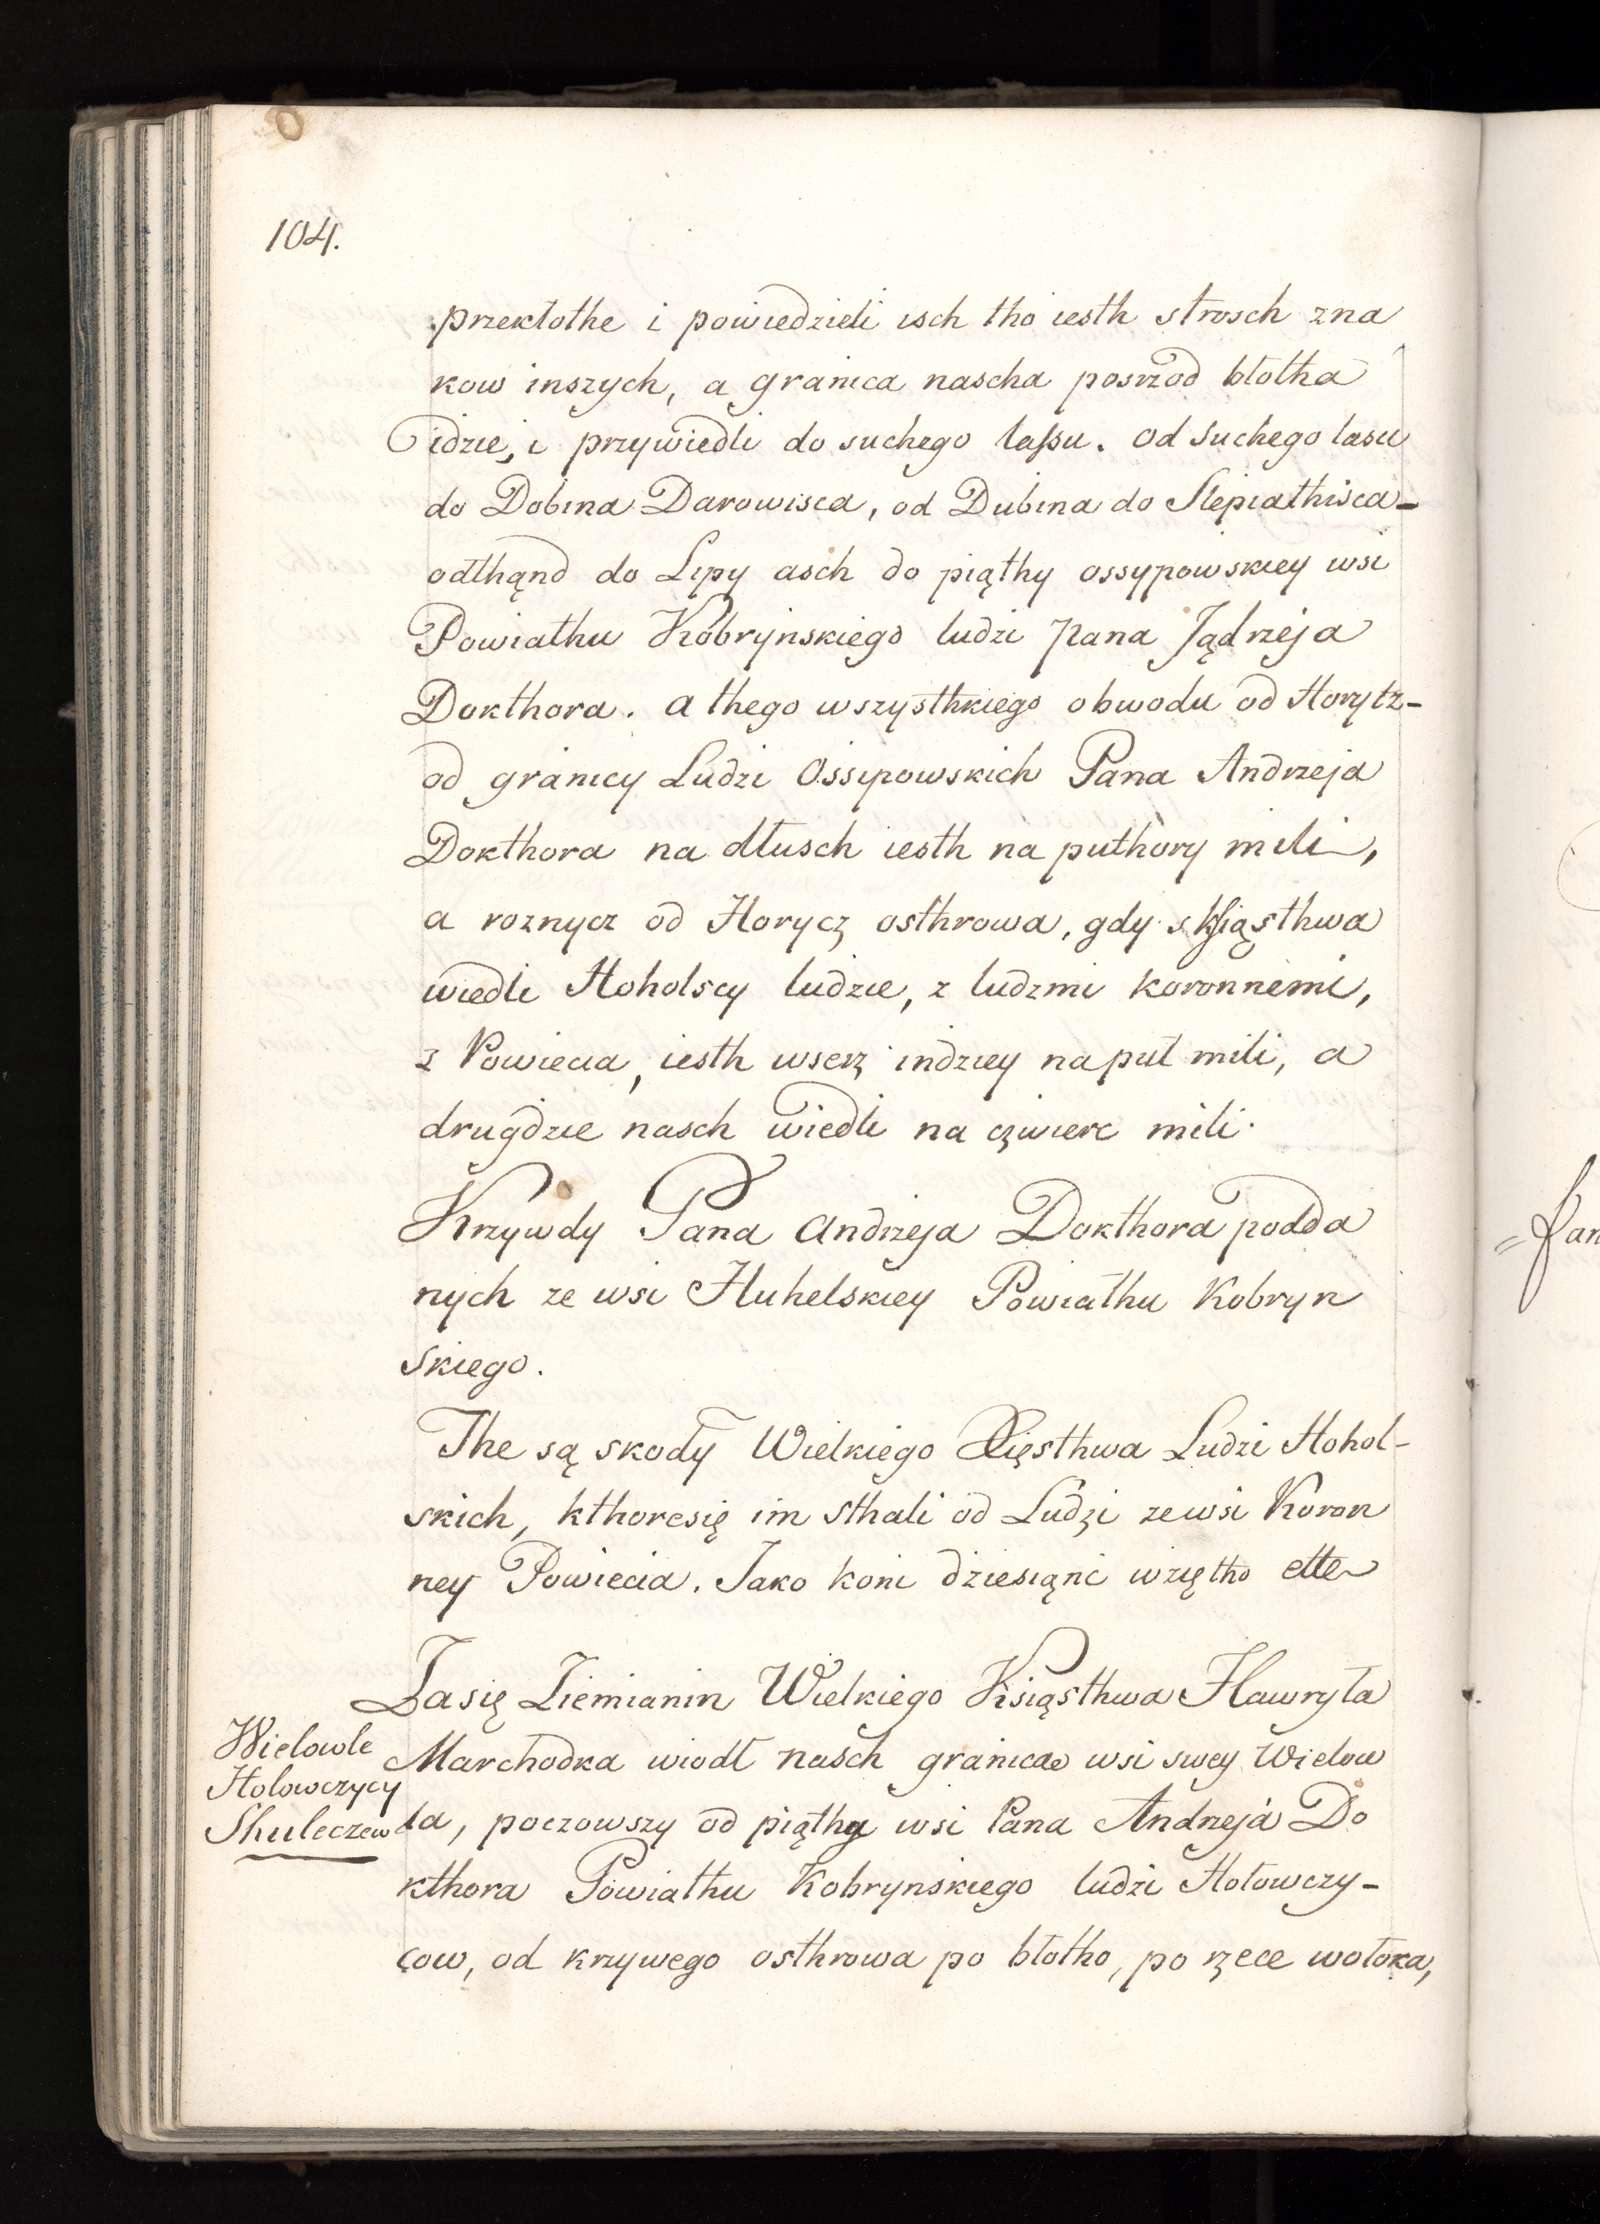 104.
przekłothe i powiedzieli isch tho iesth strosch zna
kow inszych, a granica nascha posrzod błotha
idzie, i przywiedli do suchego lassu. od suchego lasu
do Dobina Darowisca, od Dubina do Slepiathisca-
odthąnd do Lipy asch do piąthy ossypowskiey wsi
Powiathu Kobrynskiego ludzi Pana Jądrzeja
Dokthora. a thego wszysthkiego obwodu od Horytz-
od granicy Ludzi Ossipowskich Pana Andrzeja
Dokthora na dłusch iesth na puthory mili,
a roznycz od Horycz osthrowa, gdy s Ksiąsthwa
wiedli Hoholscy ludzie, z ludzmi koronnemi,
z Powiecia, iesth wserz indziey na puł mili, a
drugdzie nasch wiedli na czwierc mili.
Krzywdy Pana Andrzeja Dokthora podda
nych ze wsi Huhelskiey Powiathu Kobryn
skiego.
The są skody Wielkiego Xięsthwa Ludzi Hohol-
skich, kthoresię im sthali od Ludzi ze wsi Koron
ney Powiecia. Jako koni dziesiąnc wziętho ette
Zasię Ziemianin Wielkiego Ksiąsthwa Hawryła
Marchodka wiodł nasch granicae wsi swey Wielow
Wielowle
Holowczycy
Shuleczew
la, poczowszy od piąthy wsi Pana Andrzeja Do
kthora Powiathu Kobrynskiego ludzi Hołowczy-
cow, od krzywego osthrowa po błotho, po rzece wołoka,
= Pan